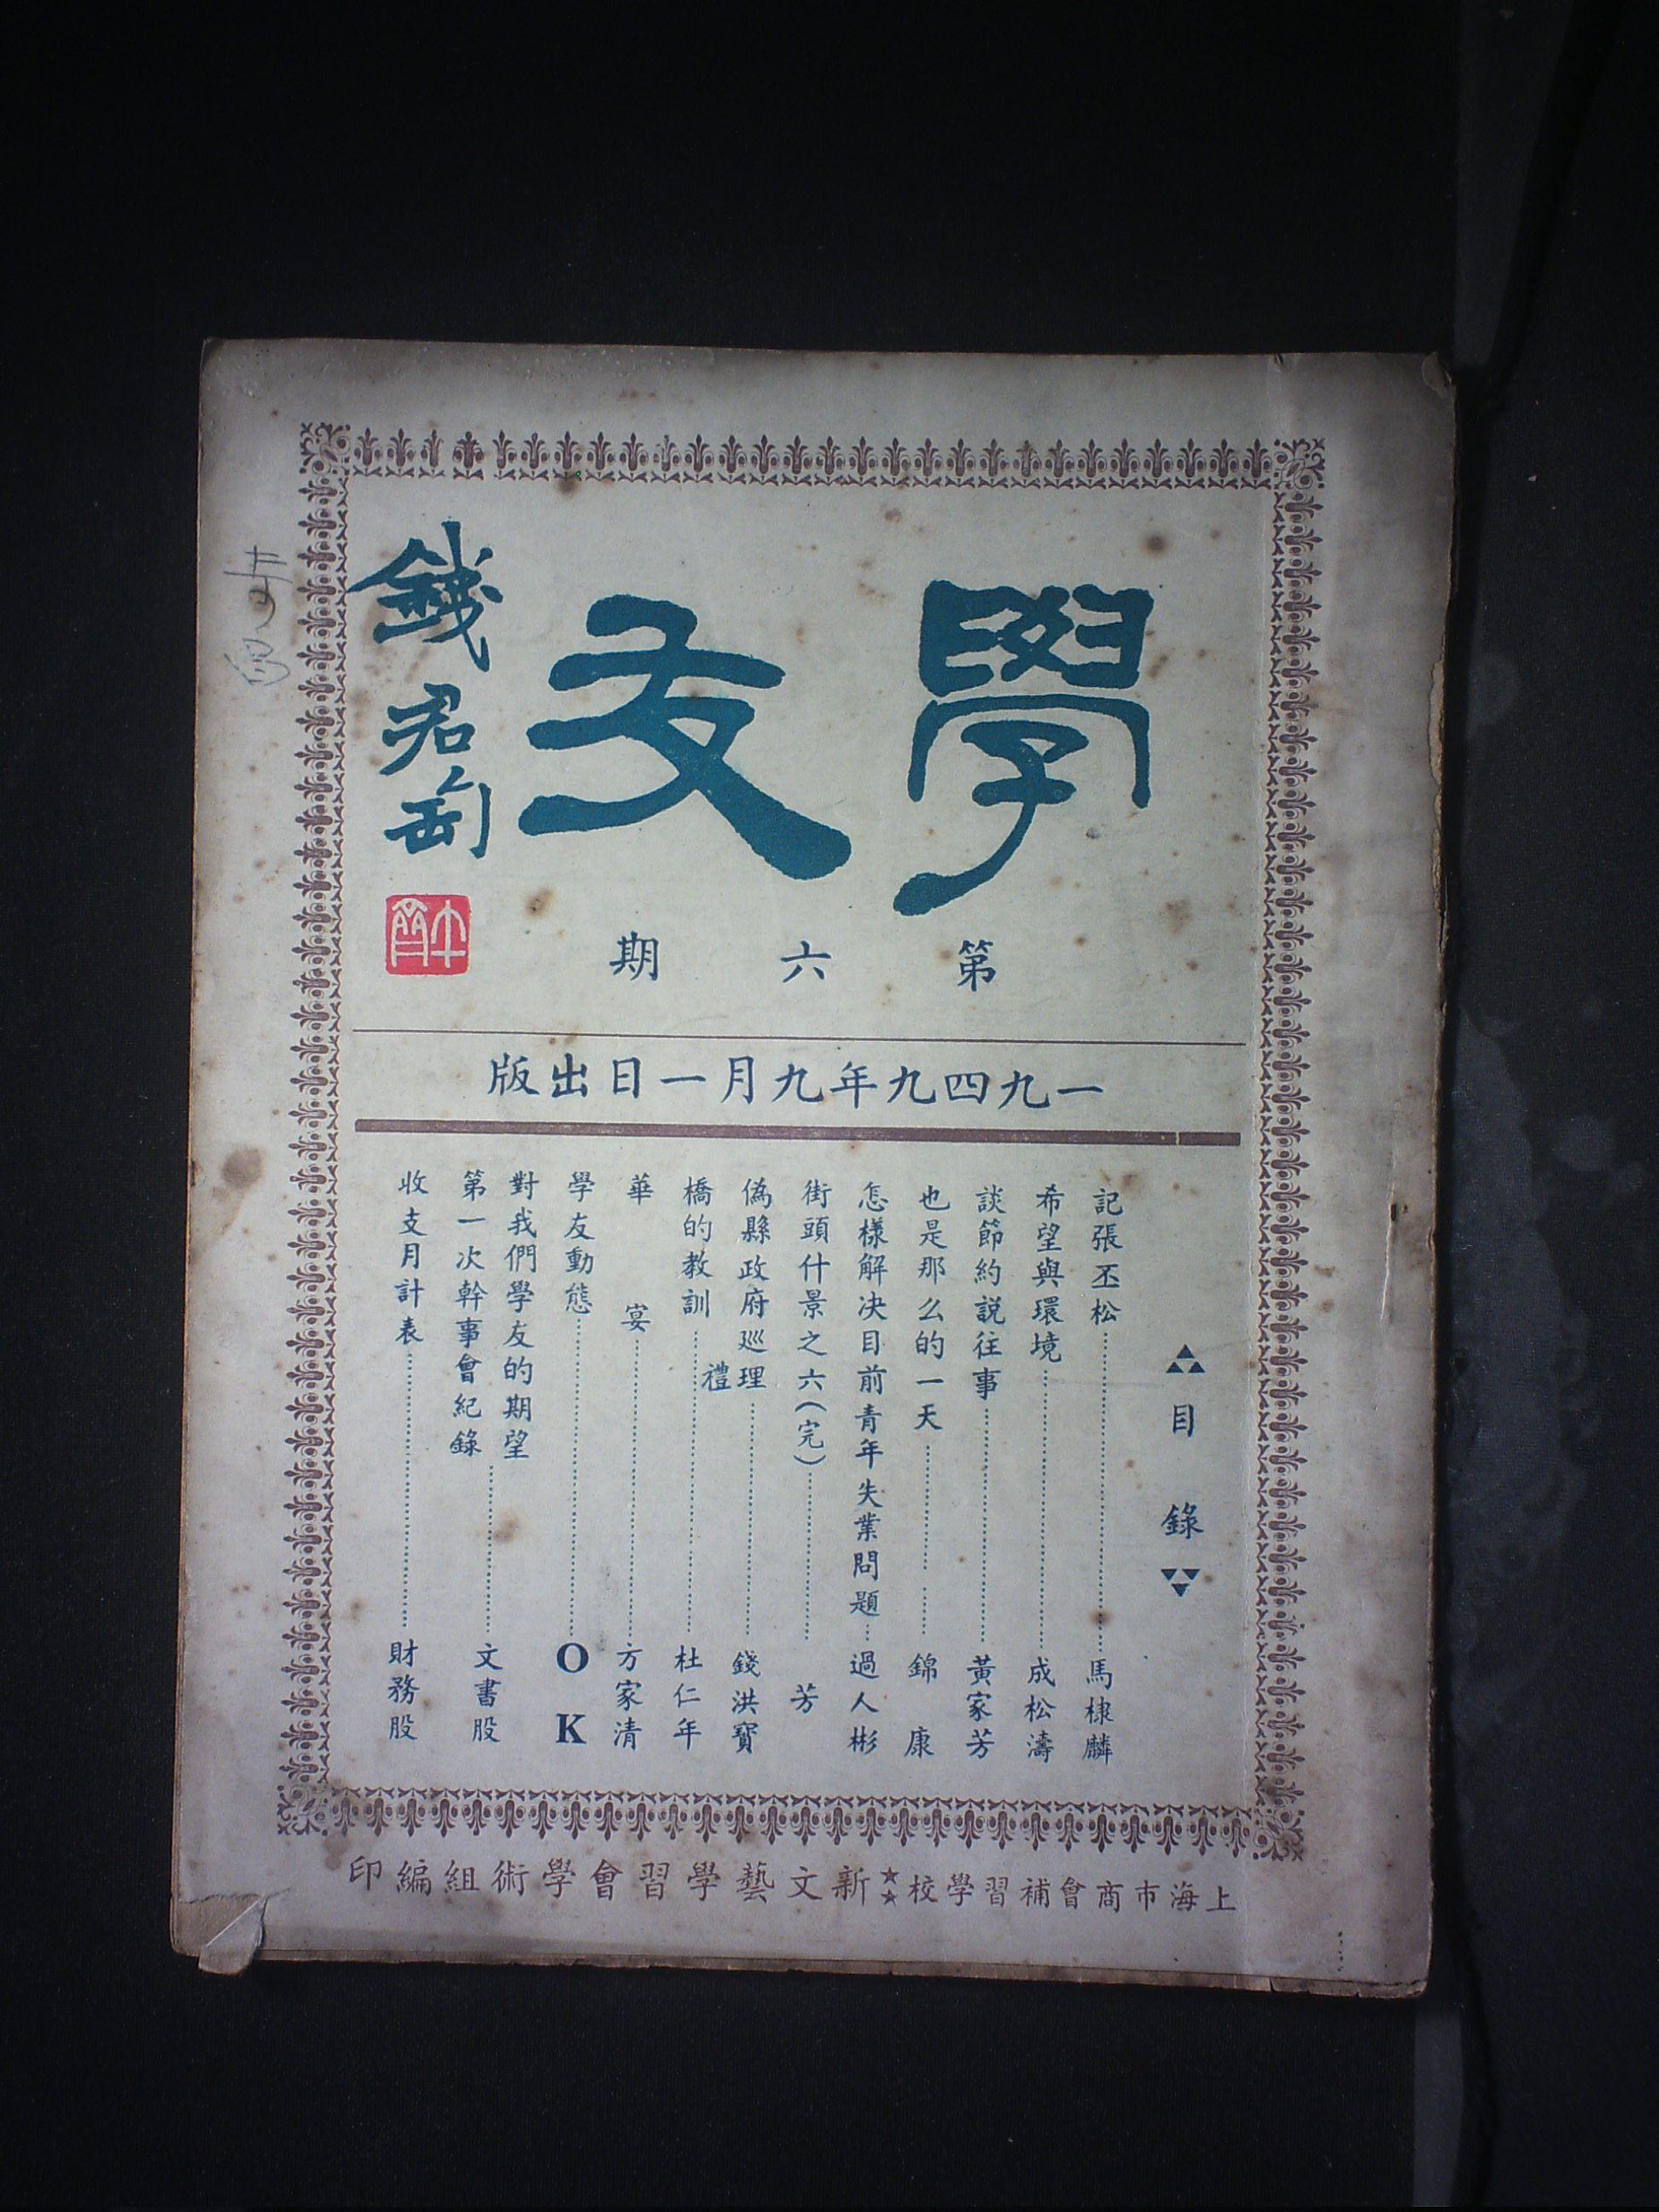 學友
錢君匋
第六期
一九四九年九月一日出版
目錄
記張丕松……馬棣麟
希望與環境……成松濤
談節約説往事……黃家芳
也是那么的一天……錦康
怎樣解决目前青年失業問題……過人彬
街頭什景之六(完)……芳
僞縣政府巡理禮……錢洪寶
橋的教訓……杜仁年
華宴……方家清
學友動態……OK
對我們學友的期望
第一次幹事會紀錄……文書股
收支月計表……財務股
上海市商會補習學校★★新文藝學習會學術組編印